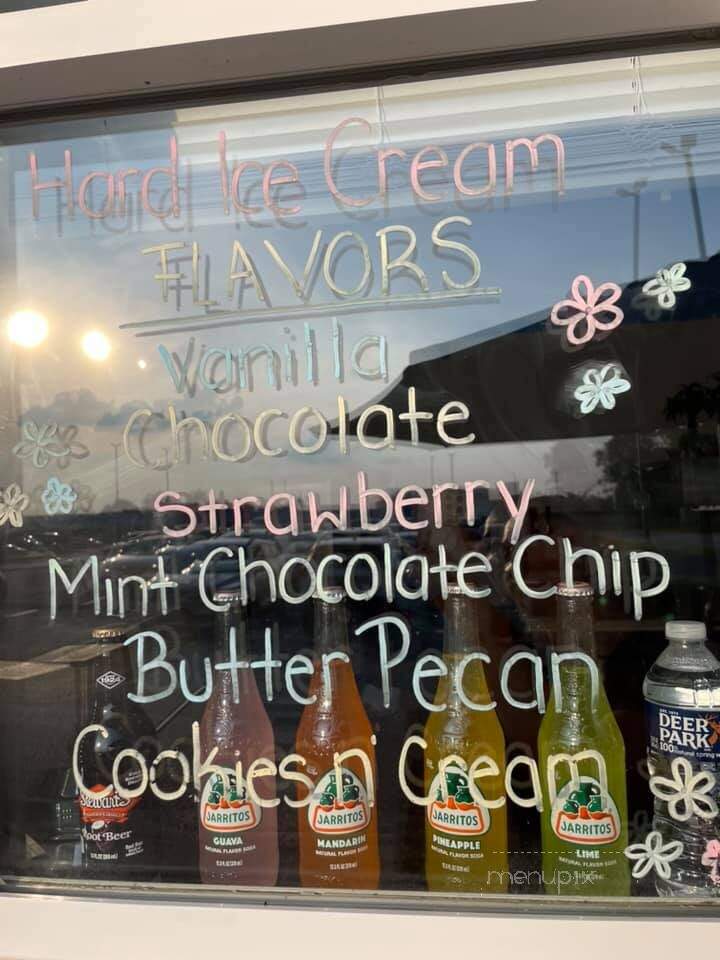 Hard Ice Cream
FLAVORS
Vanilla
Chocolate
Strawberry
Mint Chocolate Chip
Butter Pecan
Cookies n' Cream
1924
Stewart's
Root Beer
JARRITOS
GUAVA
NATURAL FLAVOR SODA
JARRITOS
MANDARIN
NATURAL FLAVOR SODA
JARRITOS
PINEAPPLE
NATURAL FLAVOR SODA
JARRITOS
LIME
NATURAL FLAVOR SODA
DEER
PARK
100% natural spring
menupix